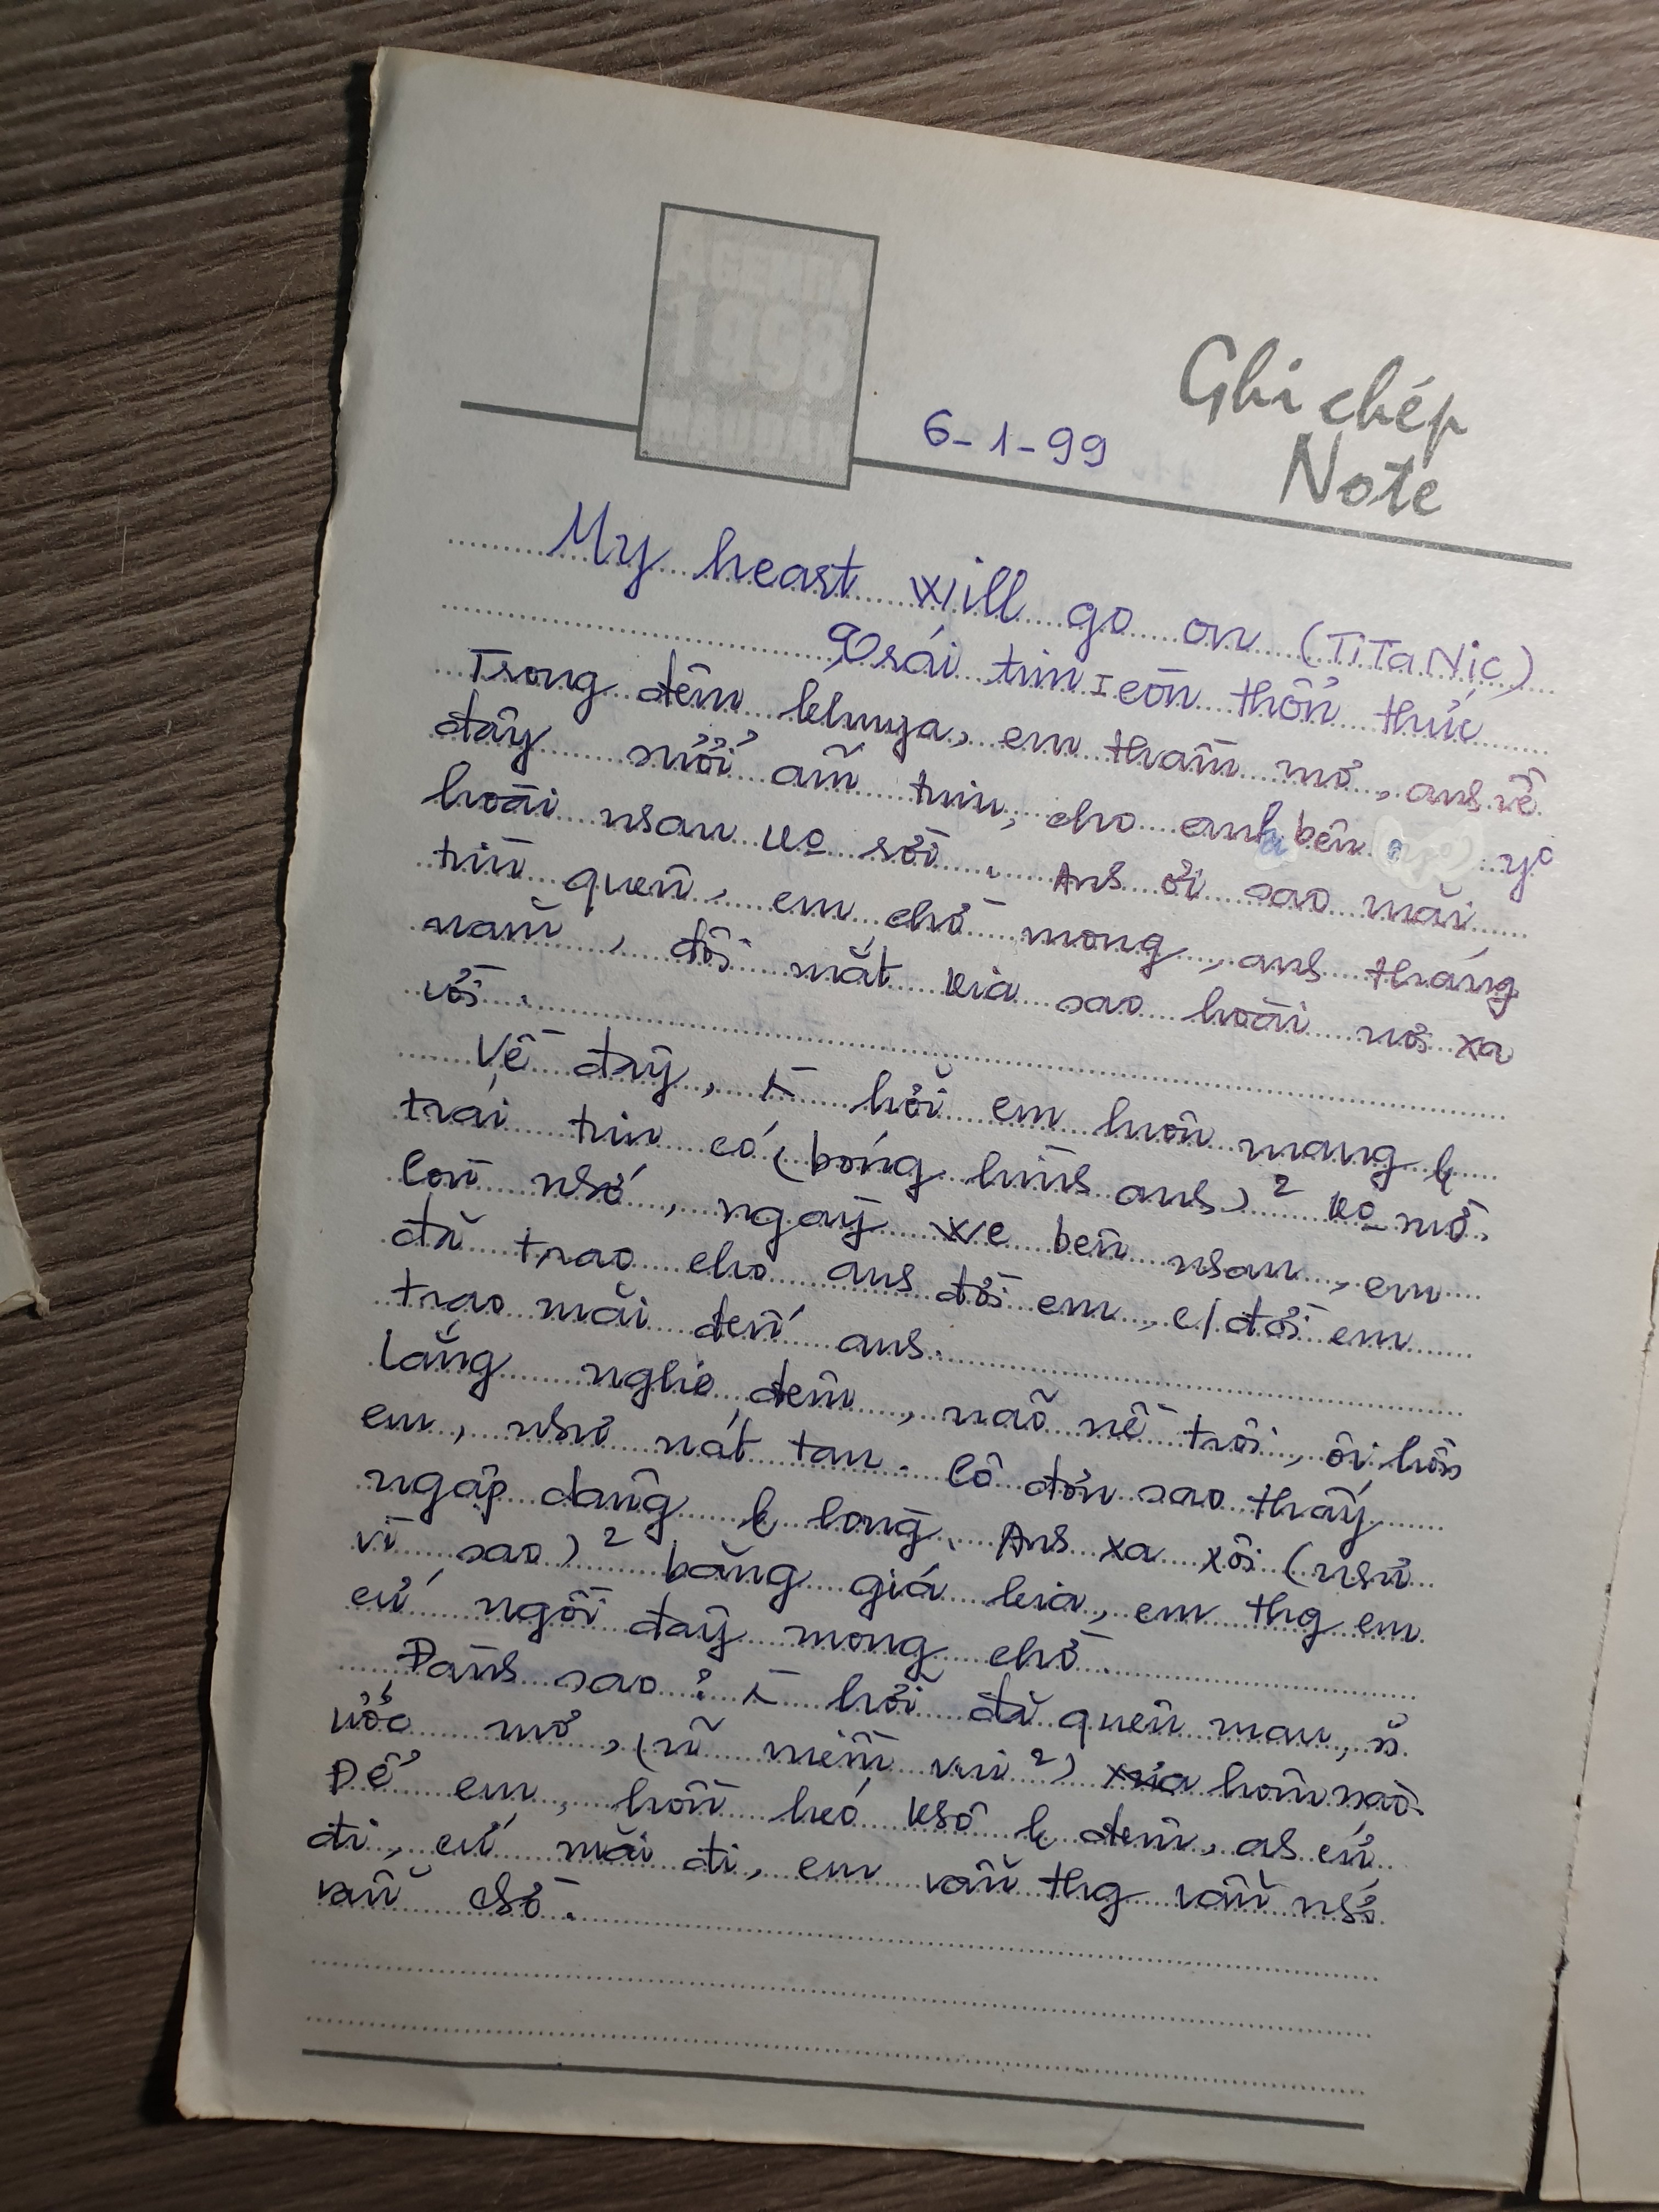 AGENDA
1998
6-1-99
Ghi chép
Note
My heart will go on (TiTaNic)
Trái tim còn thổn thức
Trong đêm khuya, em thầm mơ, anh về
đây sưởi ấm tim, cho anh bên yo
hoài nhau ko rời. Anh ơi sao mãi
tìm quên, em chờ mong, anh tháng
năm, đôi mắt kia sao hoài nơi xa
vời.
Về đây, hỡi em luôn mang
trái tim có (bóng hình anh)² ko mờ.
Còn nhớ, ngày we bên nhau, em
đã trao cho anh đời em, c/đời em
trao mãi đến anh.
Lắng nghe đêm, não nề trôi, ôi hồn
em, như nát tan. Cô đơn sao thấy
ngập dâng lòng. Anh xa xôi (như
vì sao)² băng giá kia, em thg em
cứ ngồi đây mong chờ.
Đành sao? hỡi đã quên mau,
ước mơ, (n~ niềm vui²) hôm nào.
Để em, hồn héo khô đêm, as cứ
đi, cứ mãi đi, em vẫn thg vẫn nhớ
vẫn chờ.